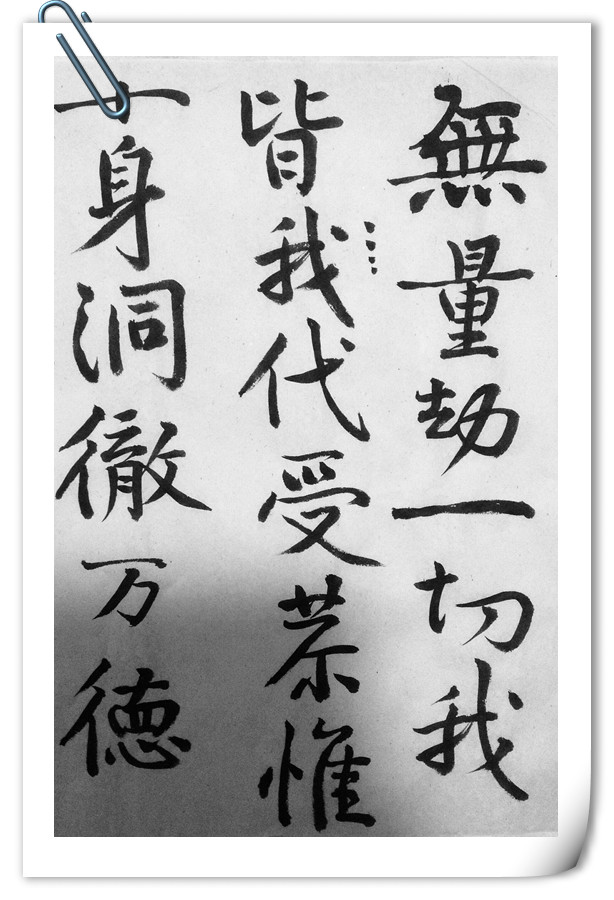 無量劫一切我
皆我代受恭惟
十身洞徹万徳